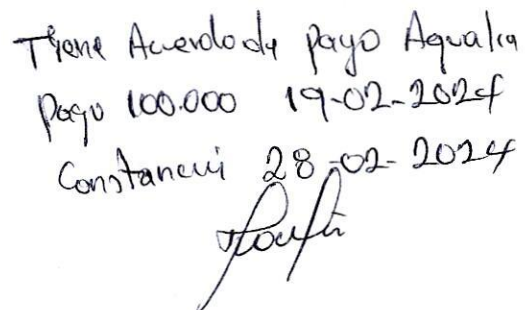 Tiene Acuerdo de pago Aqualia
pago 100.000 19-02-2024
Constancia 28-02-2024